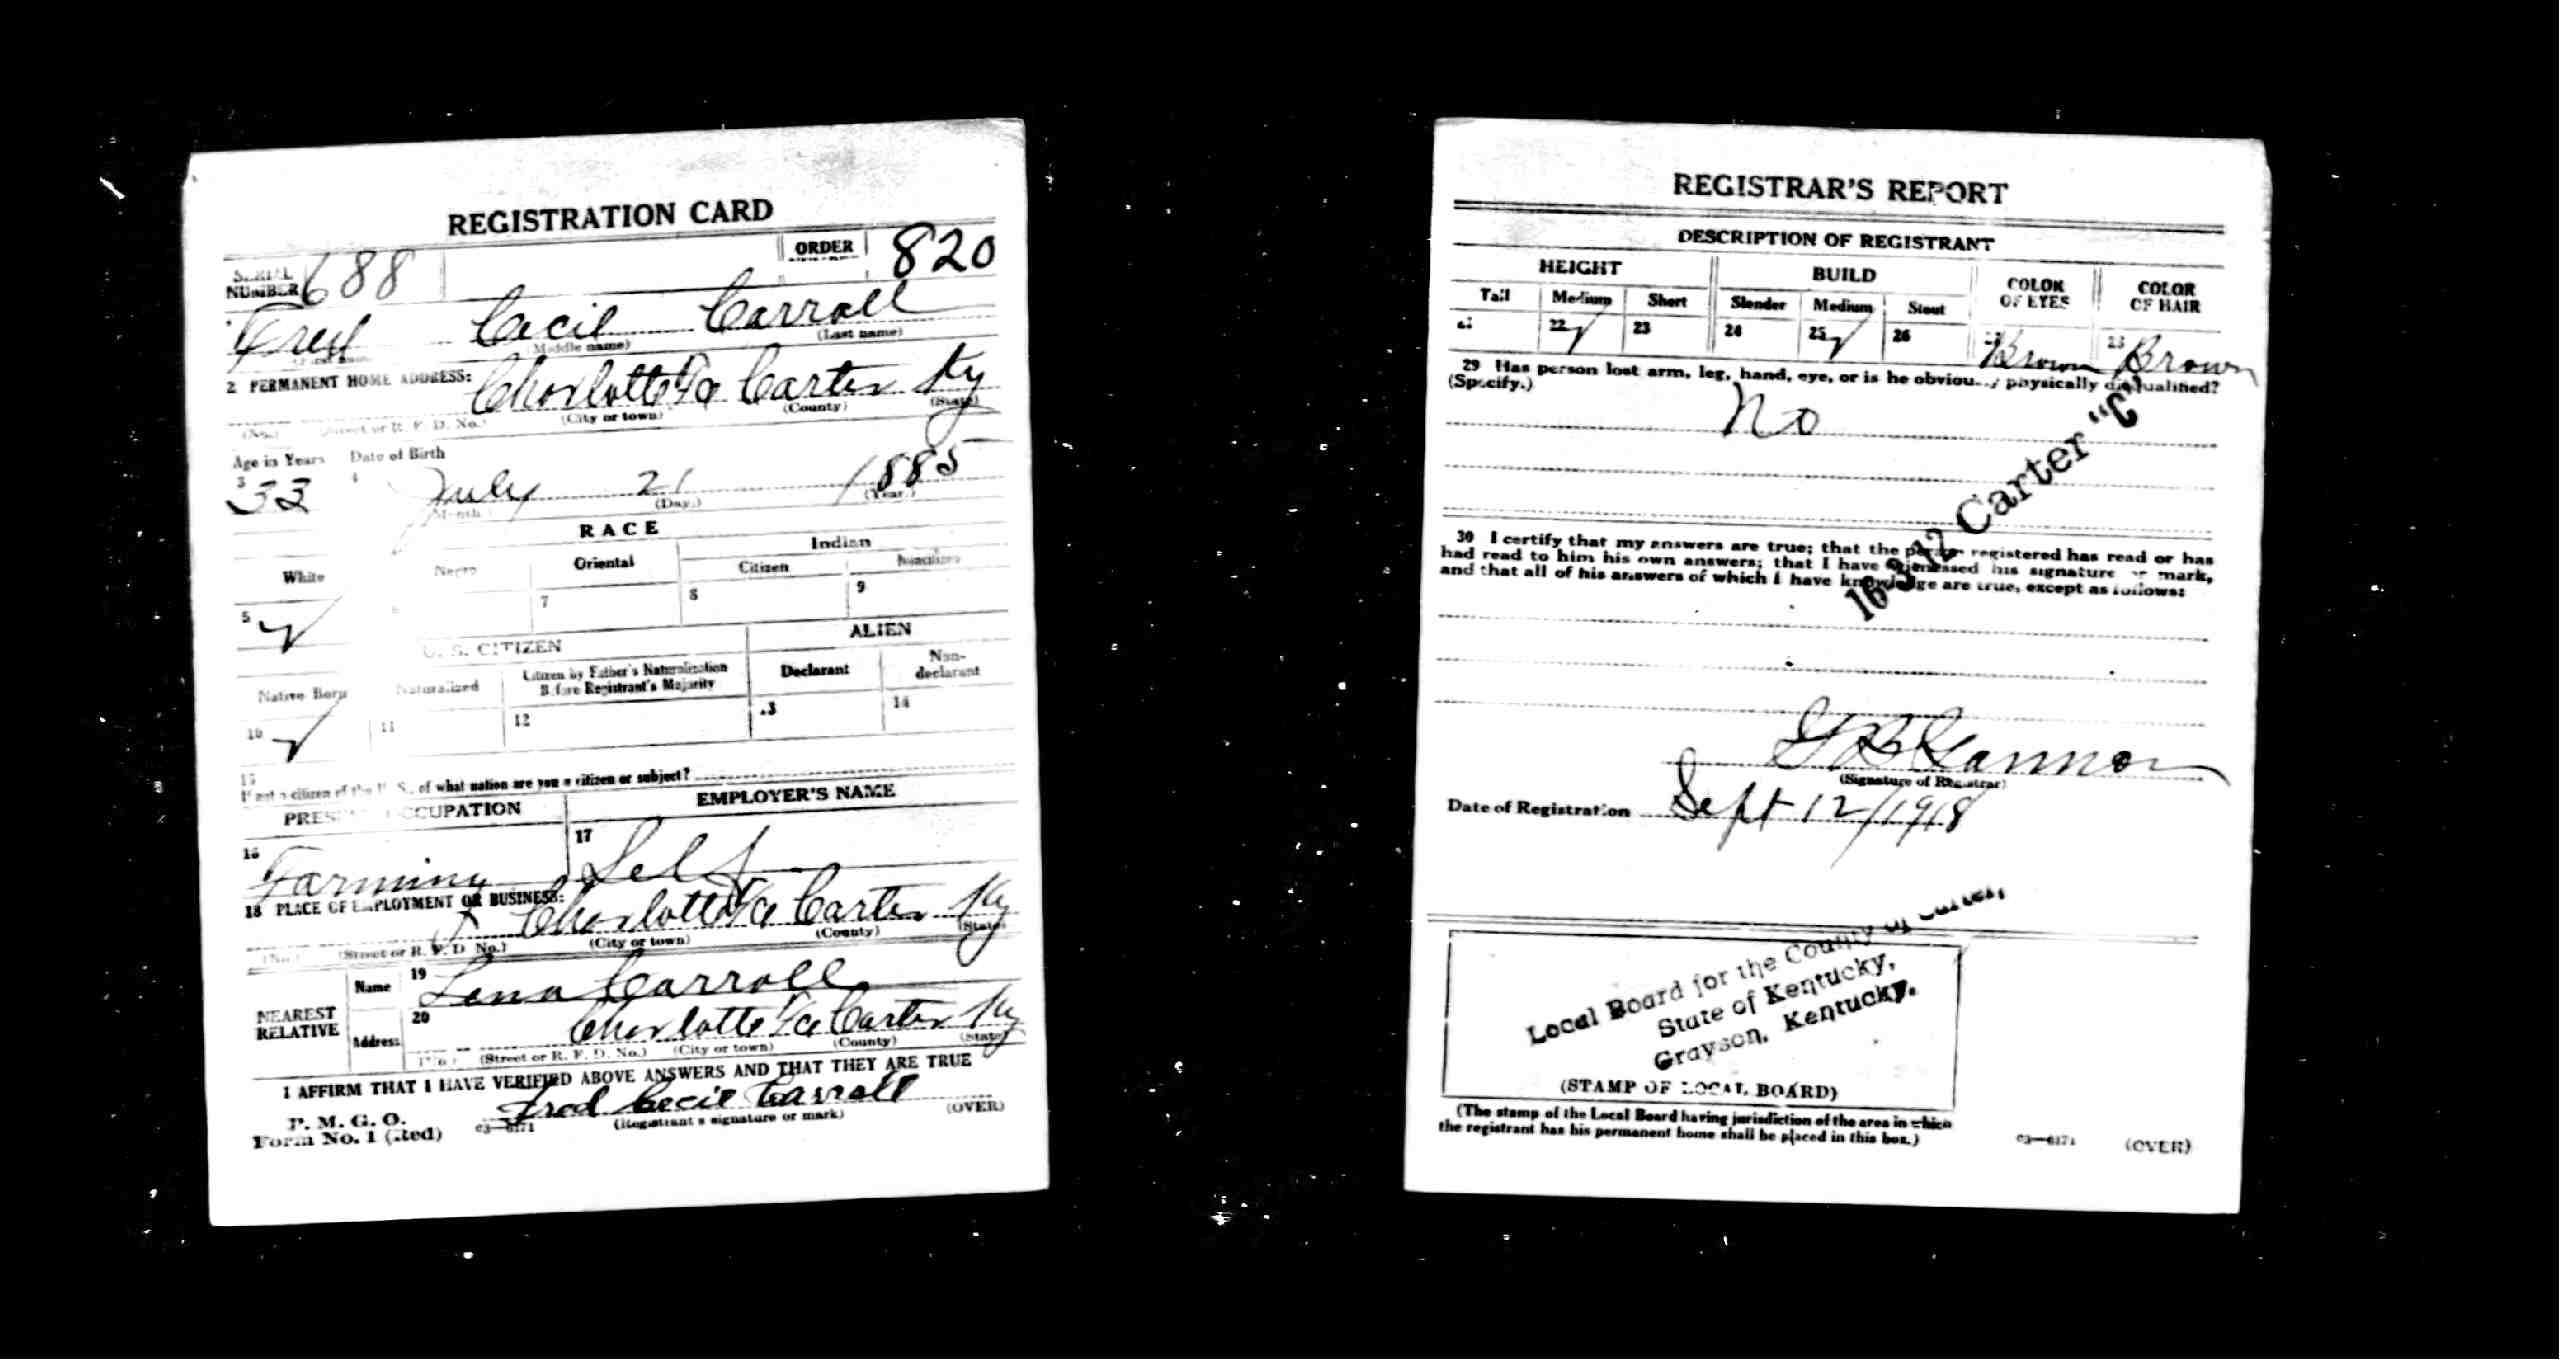 REGISTRATION CARD
SERIAL NUMBER 688 ORDER NUMBER 820
Fred Cecil Carroll
(Middle name) (Last name)
2 PERMANENT HOME ADDRESS: Charlotte Fce Carter Ky
(No.) (Street or R. F. D. No.) (City or town) (County) (State)
Age in Years Date of Birth
3 33 4 July 21 1885
(Month.) (Day.) (Year.)
RACE
White Negro Oriental Indian
Citizen Noncitizen
5 ✓ 6 7 8 9
U. S. CITIZEN ALIEN
Native Born Naturalized Citizen by Father's Naturalization Before Registrant's Majority Declarant Non-declarant
10 ✓ 11 12 13 14
15
If not a citizen of the U. S., of what nation are you a citizen or subject?
PRESENT OCCUPATION EMPLOYER'S NAME
16 Farming 17 Self
18 PLACE OF EMPLOYMENT OR BUSINESS:
Charlotte Fce Carter Ky
(No.) (Street or R. F. D. No.) (City or town) (County) (State)
NEAREST RELATIVE Name 19 Lena Carroll
Address 20 Charlotte Fce Carter Ky
(No.) (Street or R. F. D. No.) (City or town) (County) (State)
I AFFIRM THAT I HAVE VERIFIED ABOVE ANSWERS AND THAT THEY ARE TRUE
P. M. G. O.
Form No. 1 (Red) 03—6171 Fred Cecil Carroll
(Registrant's signature or mark) (OVER)
REGISTRAR'S REPORT
DESCRIPTION OF REGISTRANT
HEIGHT BUILD COLOR OF EYES COLOR OF HAIR
Tall Medium Short Slender Medium Stout
21 22 ✓ 23 24 25 ✓ 26 27 Brown 28 Brown
29 Has person lost arm, leg, hand, eye, or is he obviously physically disqualified?
(Specify.)
No
16-3-12 Carter "C"
30 I certify that my answers are true; that the person registered has read or has
had read to him his own answers; that I have witnessed his signature or mark,
and that all of his answers of which I have knowledge are true, except as follows:
Gannon
(Signature of Registrar)
Date of Registration Sept 12/1918
Local Board for the County of Carter,
State of Kentucky,
Grayson, Kentucky.
(STAMP OF LOCAL BOARD)
(The stamp of the Local Board having jurisdiction of the area in which
the registrant has his permanent home shall be placed in this box.)
03—6171 (OVER)